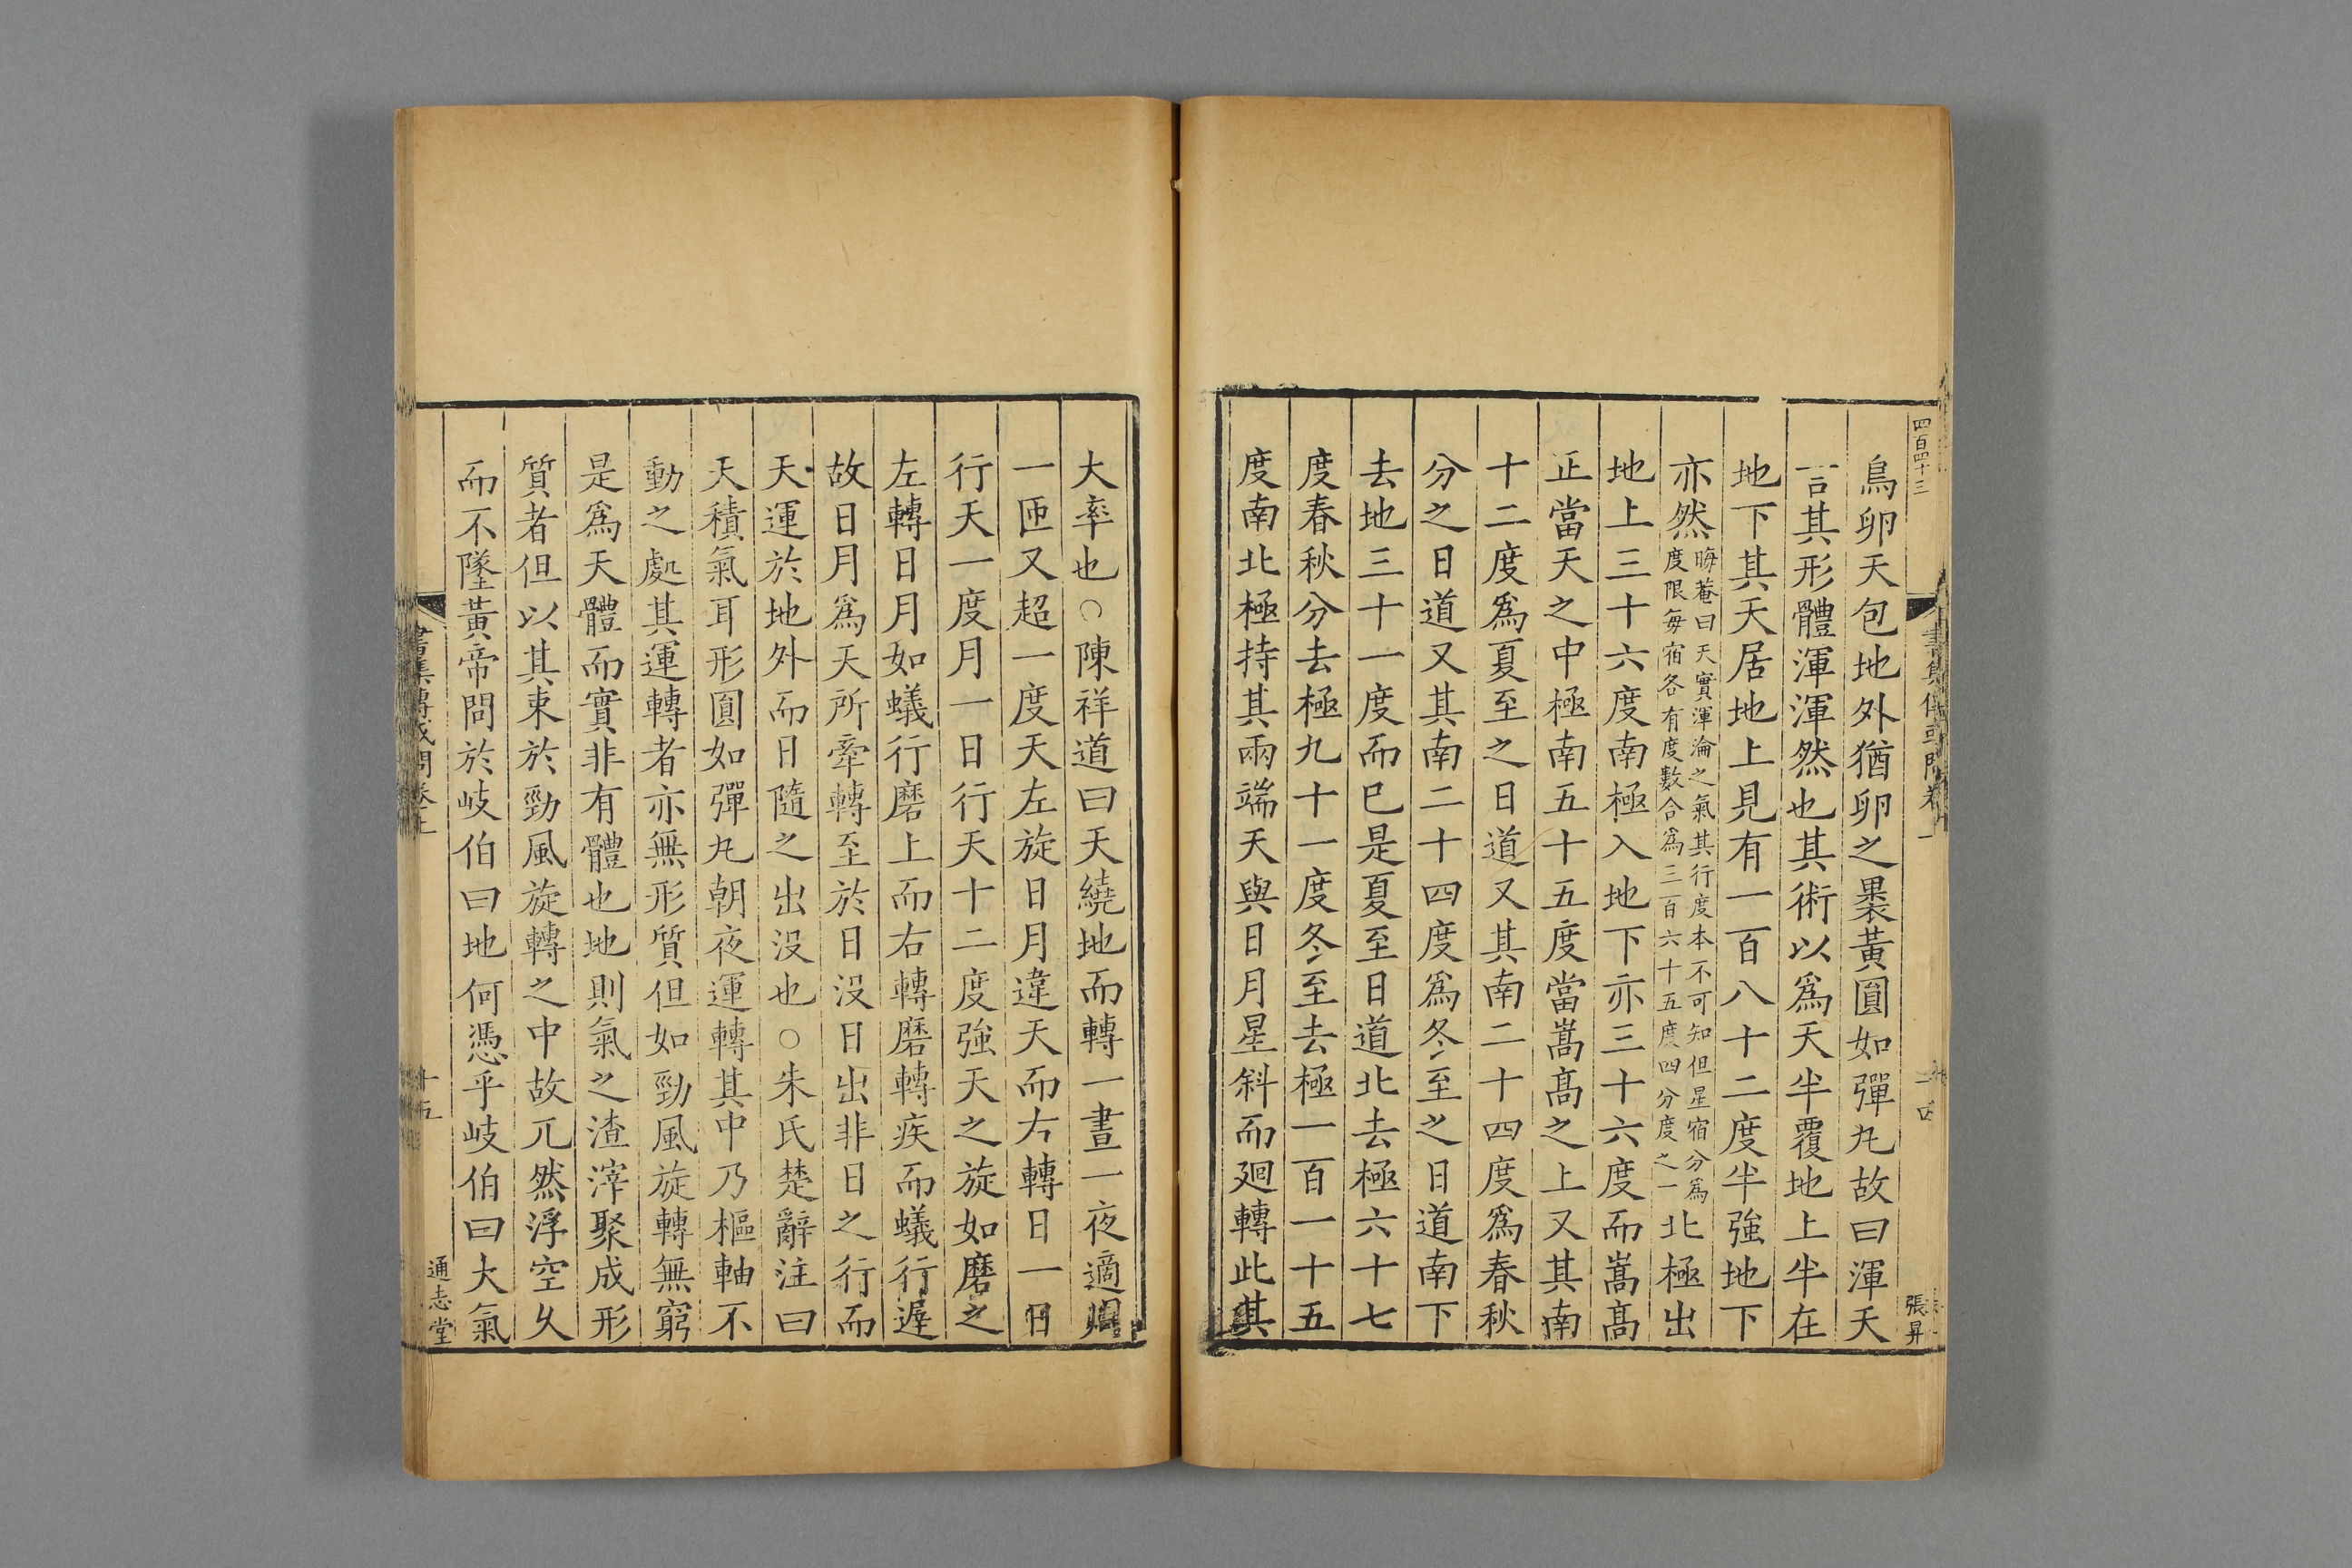 四百四十三
鳥卵天包地外猶卵之褁黃圓如彈丸故曰渾天
言其形體渾渾然也其術以爲天半覆地上半在
地下其天居地上見有一百八十二度半強地下
亦然晦菴曰天實渾淪之氣其行度本不可知但星宿分爲
度限每宿各有度數合爲三百六十五度四分度之一北極出
地上三十六度南極入地下亦三十六度而嵩高
正當天之中極南五十五度當嵩高之上又其南
十二度爲夏至之日道又其南二十四度爲春秋
分之日道又其南二十四度爲冬至之日道南下
去地三十一度而巳是夏至日道北去極六十七
度春秋分去極九十一度冬至去極一百一十五
度南北極持其兩端天與日月星斜而廻轉此其
張昇
大率也○陳祥道曰天繞地而轉一晝一夜適周
一匝又超一度天左旋日月違天而右轉日一日
行天一度月一日行天十二度強天之旋如磨之
左轉日月如蟻行磨上而右轉磨轉疾而蟻行遲
故日月爲天所牽轉至於日沒日出非日之行而
天運於地外而日隨之出沒也○朱氏楚辭注曰
天積氣耳形圓如彈丸朝夜運轉其中乃樞軸不
動之處其運轉者亦無形質但如勁風旋轉無窮
是爲天體而實非有體也地則氣之渣滓聚成形
質者但以其束於勁風旋轉之中故兀然浮空久
而不墜黃帝問於岐伯曰地何憑乎岐伯曰大氣
書集傳或問卷上
十五
通志堂